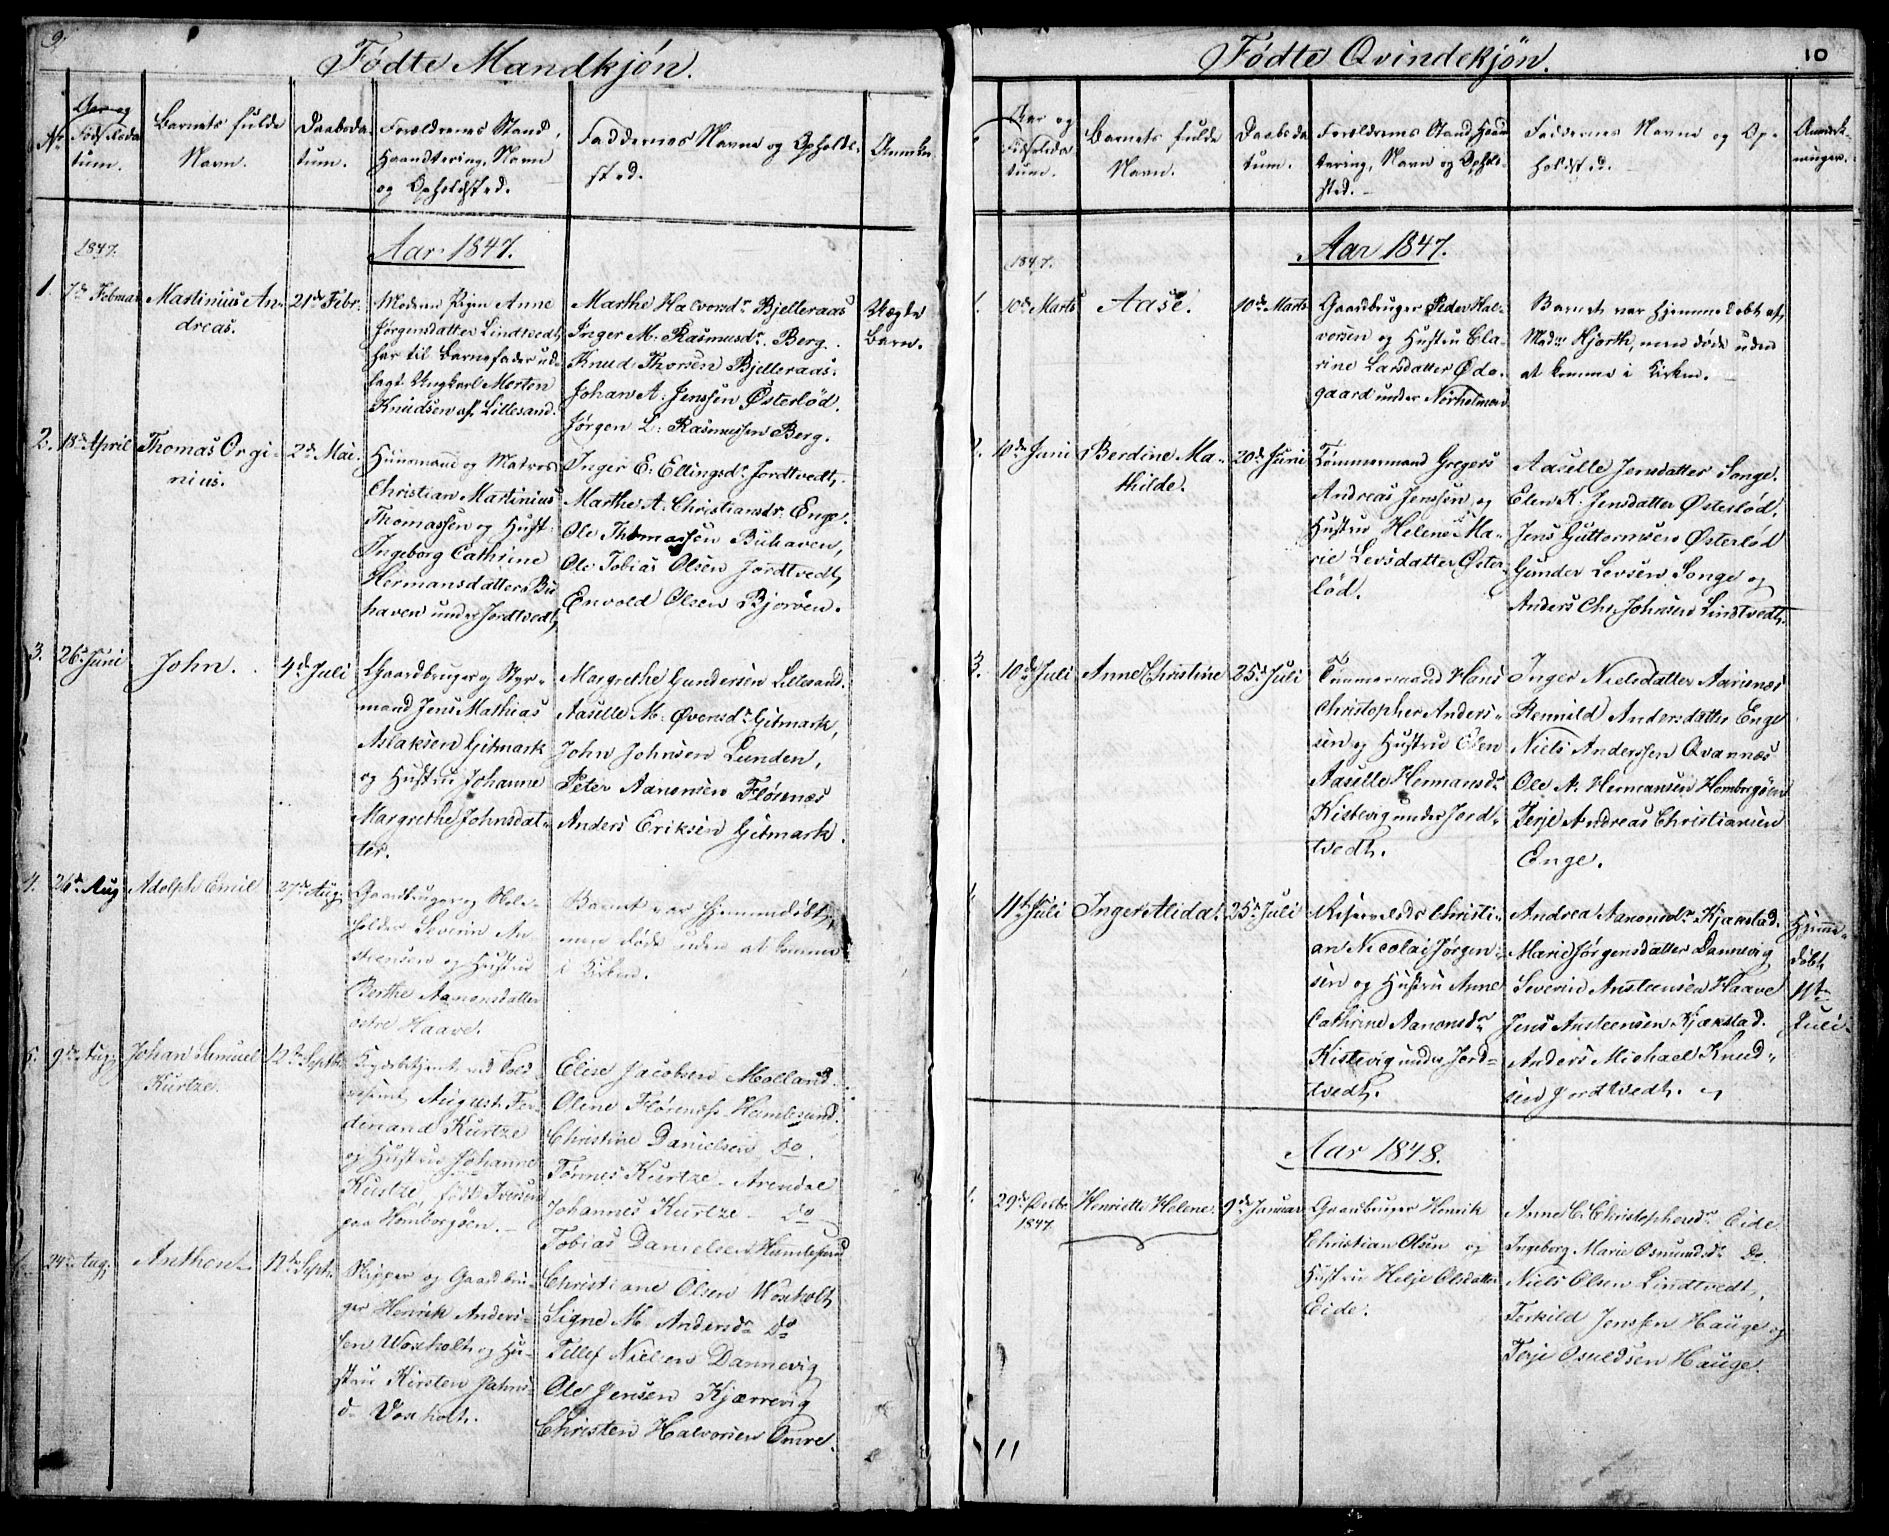 9.
Fødte Mandkjøn.
No.
Aar og
Fødselsda-
tum.
Barnets fulde
Navn.
Daabsda-
tum.
Forældrenes Stand,
Haandtering, Navn
og Opholdsted.
Faddernes Navne og Opholds-
sted.
Anmkn.
1847.
Aar 1847.
1.
7de Februar
Martinius An-
dreas.
21de Febr:
Moderen Pigen Anne
Jørgensdatter Lindtvedt,
har til Barnefader ud-
lagt Ungkarl Morten
Knudsen af Lillesand.
Marthe Halvorsdr. Bjelleraas
Inger M. Rasmusdr. Berg.
Knud Thorsen Bjelleraas.
Johan A. Jenssen Østerlød.
Jørgen L. Rasmussen Berg.
Uægte
Barn.
2.
18de April
Thomas Orgi-
nius.
2de Mai.
Huusmand og Matros
Christian Martinius
Thomassen og Hust.
Ingeborg Cathrine
Hermansdatter Bu-
haven under Jordtvedt,
Inger E. Ellingsdr. Jordtvedt,
Marthe A. Christiansdr. Enge.
Ole Thomassen Buhaven,
Ole Tobias Olsen Jordtvedt,
Envold Olsen Bjorøen.
3.
26de Juni
John.
4de Juli
Gaardbruger og Styr-
mand Jens Mathias
Aslaksen Gitmark
og Hustru Johanne
Margrethe Johnsdat-
ter.
Margrethe Gundersen Lillesand.
Aaselle M. Øvensdr. Gitmark,
John Johnsen Lunden,
Peter Aanonsen Flørenæs
Anders Eriksen Gitmark.
4.
26de Aug
Adolph Emil
27de Aug:
Gaardbruger og
Severin An-
stensen og Hustru
Berthe Aanonsdatter
østre Haave.
Barnet var hjemmedøbt,
men døde uden at komme
i Kirken.
5.
9de Aug:
Johan Samuel
Kurtze.
12te Septbr.
ved Told-
August Fer-
dinand Kurtze
og Hustru Johanne
Kurtze, født Iversen
paa Homborøen.
Elise Jacobsen Molland.
Oline Flørenæs Humlesund.
Christine Danielsen Do.
Tønnes Kurtze Arendal
Johannes Kurtze Do
Tobias Danielsen Humlesund
24de Aug:
Anthon
12te Sept:
Skipper og Gaardbru-
ger Henrik Anders-
sen Woxholt og Hu-
stru Kirsten
Voxholt.
Christiane Olsen Woxholt,
Signe M. Andersdr. Do
Tellef Nielsen Dannevig
Ole Jensen Kjærrevig
Christen Halvorsen Omre.
Fødte Qvindekjøn.
10
Aar og
Fødselsda-
tum.
Barnets fulde
Navn.
Daabsda-
tum.
Forældrenes Stand, Haand-
tering, Navn og Ophold-
sted.
Faddernes Navne og Op-
holdsted.
Anmærk-
ninger.
1847.
Aar 1847.
1.
10de Marts
Aase.
10de Marts
Gaardbruger Peder Hal-
vorsen og Hustru Ela-
rine Larsdatter Øde-
gaard under Nørholmen
Barnet var hjemmedøbt af
Mad. Hjorth, men døde uden
at komme i Kirken.
2.
10de Juni
Berdine Ma-
thilde.
20de Juni
Tømmermand Gregers
Andreas Jenssen og
Hustru Helene Ma-
rie Levsdatter Øster-
lød.
Aaselle Jensdatter Songe.
Elen K. Jensdatter Østerlød,
Jens Guttormsen Østerlød
Gunder Levsen Songe og
Anders Chr. Johnsen Lindtvedt.
3.
10de Juli
Anne Christine
25de Juli
Tømmermand Hans
Christopher Anders-
sen og Hustru Elen
Aaselle Hermansdr.
Kistevig under Jord-
tvedt.
Inger Nielsdatter Aarsnæs
Rennild Andersdatter Enge
Niels Anderssen Qvannæs
Ole N. Hermansen Homborgøen
Terje Andreas Christiansen
Enge.
11te Juli
Inger Alida.
25de Juli
Christi-
an Nicolai Jørgen-
sen og Hustru Anne
Cathrine Aanonsdr.
Kistevig under Jord-
tvedt.
Andrea Aanonsdr. Kjærstad.
Marie Jørgensdatter Dannevig
Severin Ansteensen Haave
Jens Ansteensen Kjærstad.
Anders Michael Knud-
sen Jordtvedt.
Hjemme-
døbt
11te
Juli
Aar 1848.
1.
29de Decbr.
1847.
Henriette Helene.
9de Januar
Gaardbruger Henrik
Christian Olsen og
Hustru Helje Olsdatter
Eide.
Anne C. Christophersdr. Eide
Ingeborg Marie Osmundsdr. Do.
Niels Olsen Lindtvedt,
Terkild Jenssen Hauge og
Terje Osuldsen Hauge.
11